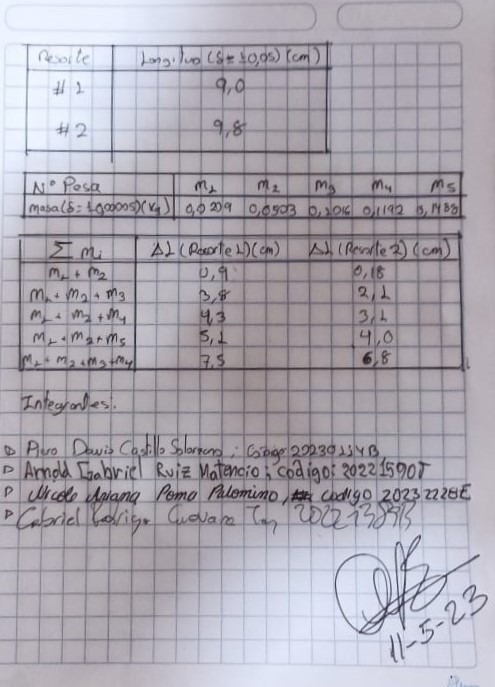 Resorte Longitud (δ = ±0,05) (cm)
#1 9,0
#2 9,8
N° Pesa m1 m2 m3 m4 m5
masa (δ = ±0,00005) (kg) 0,0209 0,0503 0,1192
Σ mi ΔL (Resorte 1) (cm) ΔL (Resorte 2) (cm)
m1 + m2 0,9 0,18
m1 + m2 + m3 3,8 2,1
m1 + m2 + m4 4,3 3,1
m1 + m2 + m5 5,1 4,0
m1 + m2 + m3 + m4 7,5 6,8
Integrantes:
Davis Castillo Solorzano; código:
Arnold Gabriel Ruiz Matencio; código: 20221590J
Poma Palomino, codigo 20232228E
Gabriel Rodrigo Guevara
11-5-23